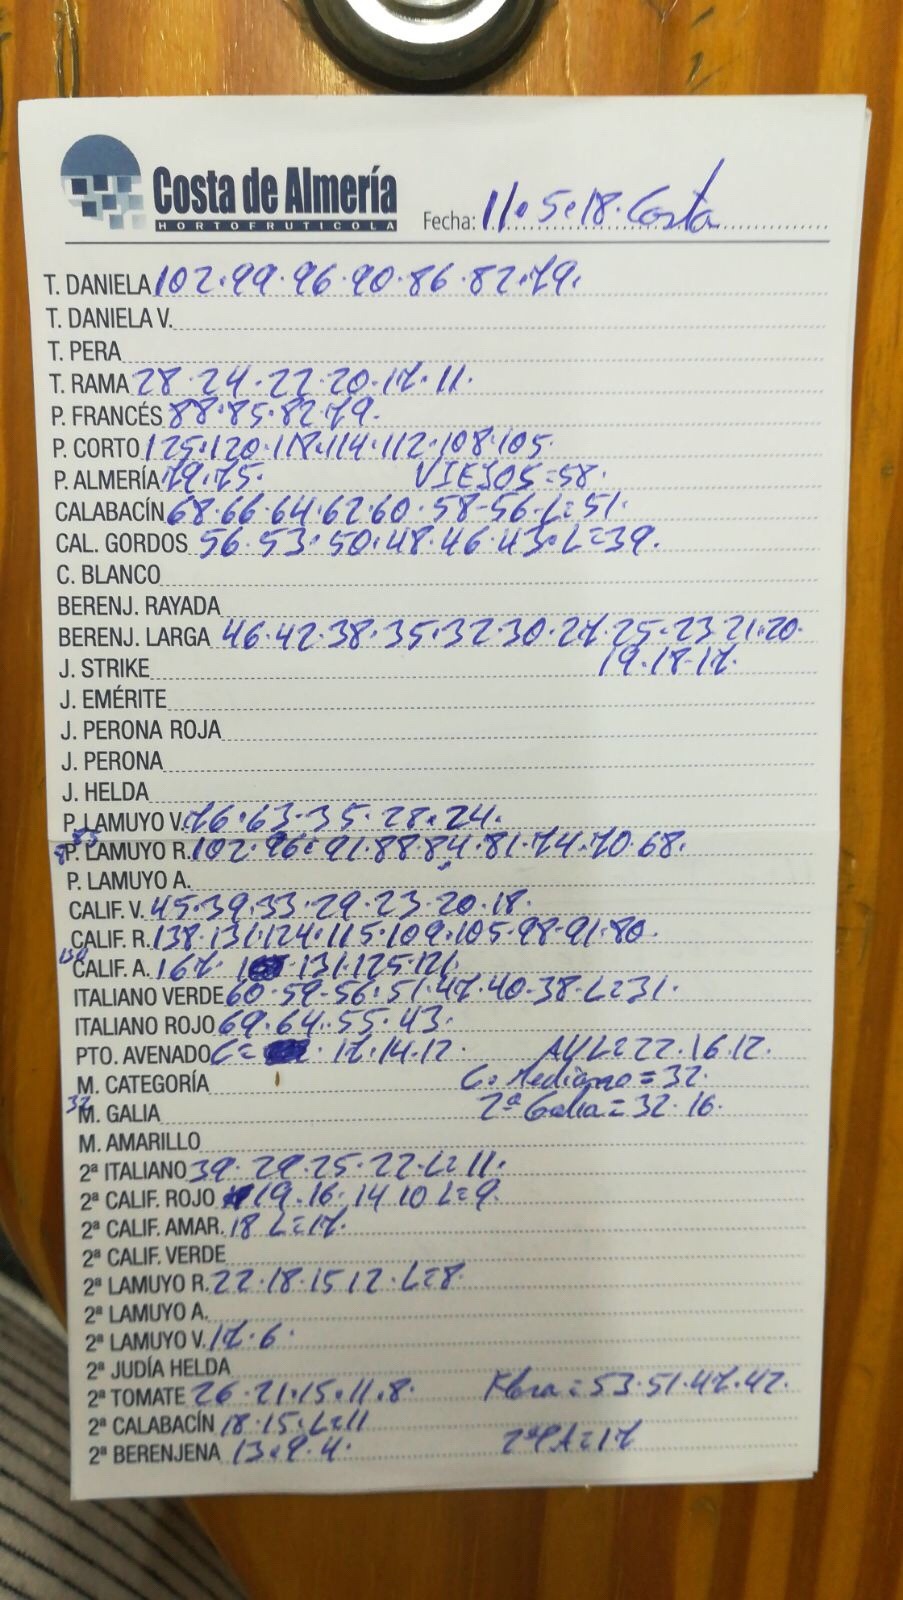 Costa de Almería
HORTOFRUTICOLA
Fecha: 11.5.18. Costa
T. DANIELA 102.99.96.90.86.82.79.
T. DANIELA V.
T. PERA
T. RAMA 28.24.22.20.17.11.
P. FRANCÉS 88.85.82.79.
P. CORTO 125.120.118.114.112.108.105
P. ALMERÍA 79.75. VIEJOS=58.
CALABACÍN 68.66.64.62.60.58-56-L=51.
CAL. GORDOS 56.53.50.48.46.43.L=39.
C. BLANCO
BERENJ. RAYADA
BERENJ. LARGA 46.42.38.35.32.30.27.25.23.21.20.
J. STRIKE 19.18.17.
J. EMÉRITE
J. PERONA ROJA
J. PERONA
J. HELDA
P. LAMUYO V. 76.63.35.28.24.
P. LAMUYO R. 102.96.91.88.84.81.74.70.68.
P. LAMUYO A.
CALIF. V. 45.39.33.29.23.20.18.
CALIF. R. 138.131.124.115.109.105.98.91.80.
CALIF. A. 167. 131.125.121
ITALIANO VERDE 60.59-56.51.47.40.38.L=31.
ITALIANO ROJO 69.64.55.43.
PTO. AVENADO 17.14.12. 22.16.12.
M. CATEGORÍA G. Mediano=32.
32
M. GALIA 2ª Galia=32.16.
M. AMARILLO
2ª ITALIANO 39.29.25.22.L=11.
2ª CALIF. ROJO 19.16.14 10 L=9.
2ª CALIF. AMAR. 18 L=17.
2ª CALIF. VERDE
2ª LAMUYO R. 22.18.15 12.L=8.
2ª LAMUYO A.
2ª LAMUYO V. 17.6.
2ª JUDÍA HELDA
2ª TOMATE 26.21.15.11.8. =53.51.47.42.
2ª CALABACÍN 18.15.L=11
2ª BERENJENA 13.9.4. 2ªPA=17